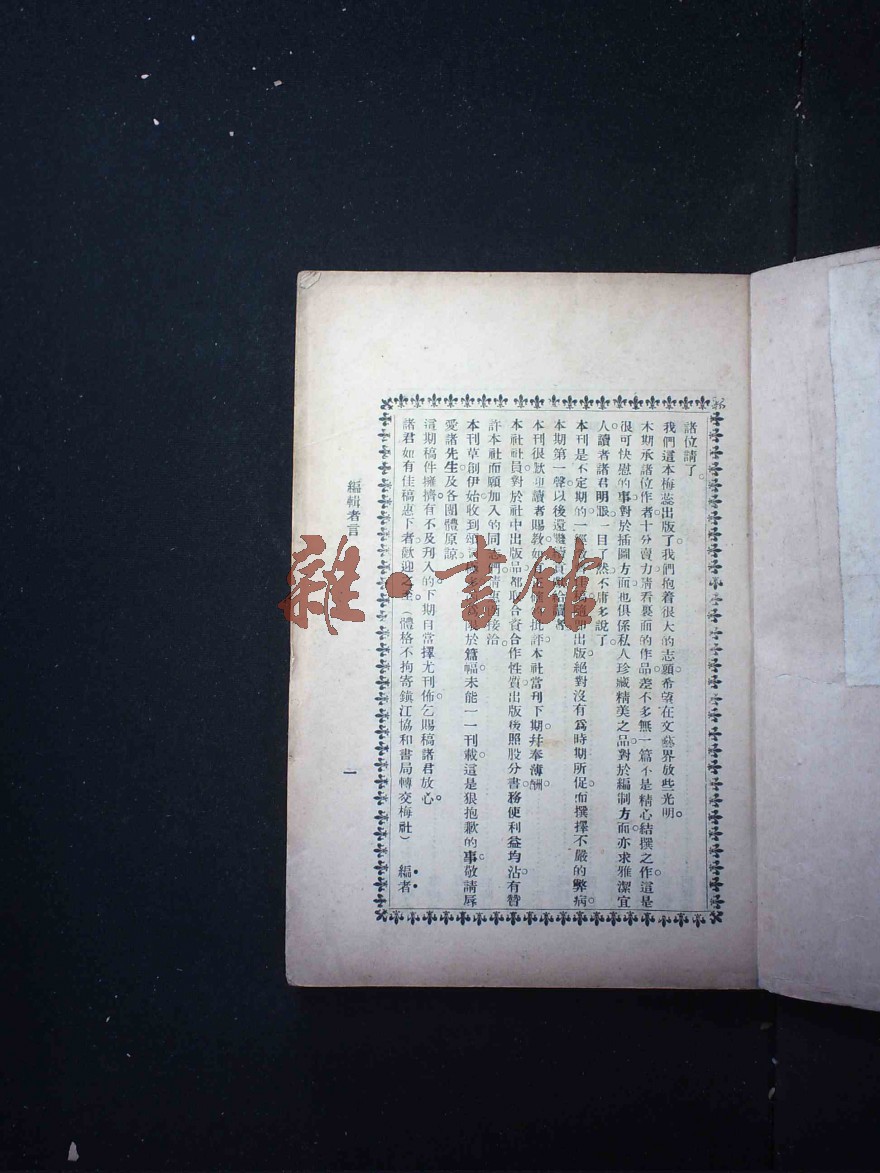 諸位請了。
我們這本梅蕊出版了我們抱着很大的志願希望在文藝界放些光明。
本期承諸位作者十分賣力請看裏面的作品差不多無一篇不是精心結撰之作這是
很可快慰的事對於插圖方面也俱係私人珍藏精美之品對於編制方面亦求雅潔宜
人讀者諸君明眼一目了然不庸多說了。
本刊是不定期的一經 出版絕對沒有爲時期所促而撰擇不嚴的弊病。
本期第一聲以後還 讀者
本刊很歡迎讀者賜敎如有正確批評本社當刊下期幷奉薄酬。
本社社員對於社中出版品都取合資合作性質出版後照股分書務使利益均沾有贊
許本社而願加入的同志們請惠 接洽。
本刊草創伊始收到 於篇幅未能一一刊載這是狠抱歉的事敬請辱
愛諸先生及各團體原諒。
這期稿件擁擠有不及刊入的下期自當擇尤刊佈乞賜稿諸君放心。
諸君如有佳稿惠下者歡迎之至(體格不拘寄鎭江協和書局轉交梅社) 編者
編輯者言
一
雜·書館